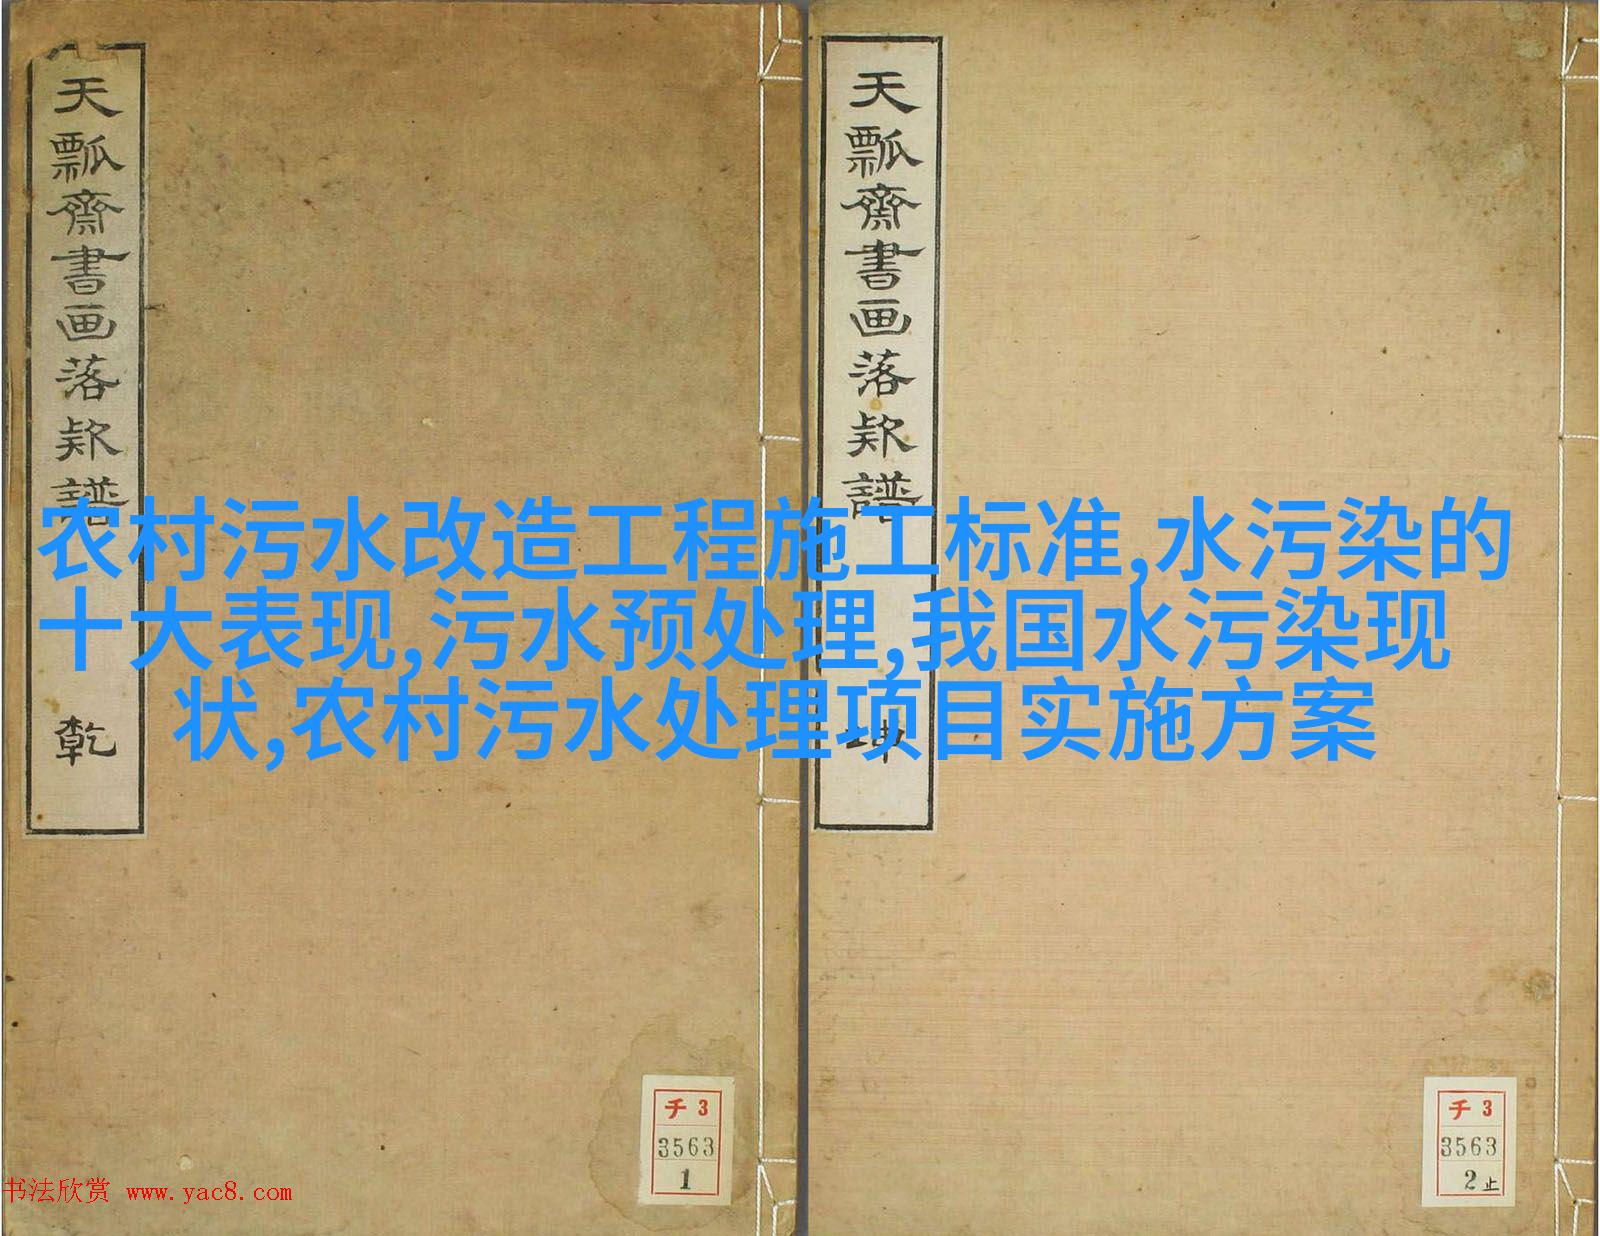 天瓢齋書画落欵譜
乾
天瓢齋書画落欵譜
坤
农村污水改造工程施工标准,水污染的
十大表现,污水预处理,我国水污染现
状,农村污水处理项目实施方案
チ3
3563
1
チ3
3563
2止
书法欣赏 www.yac8.com